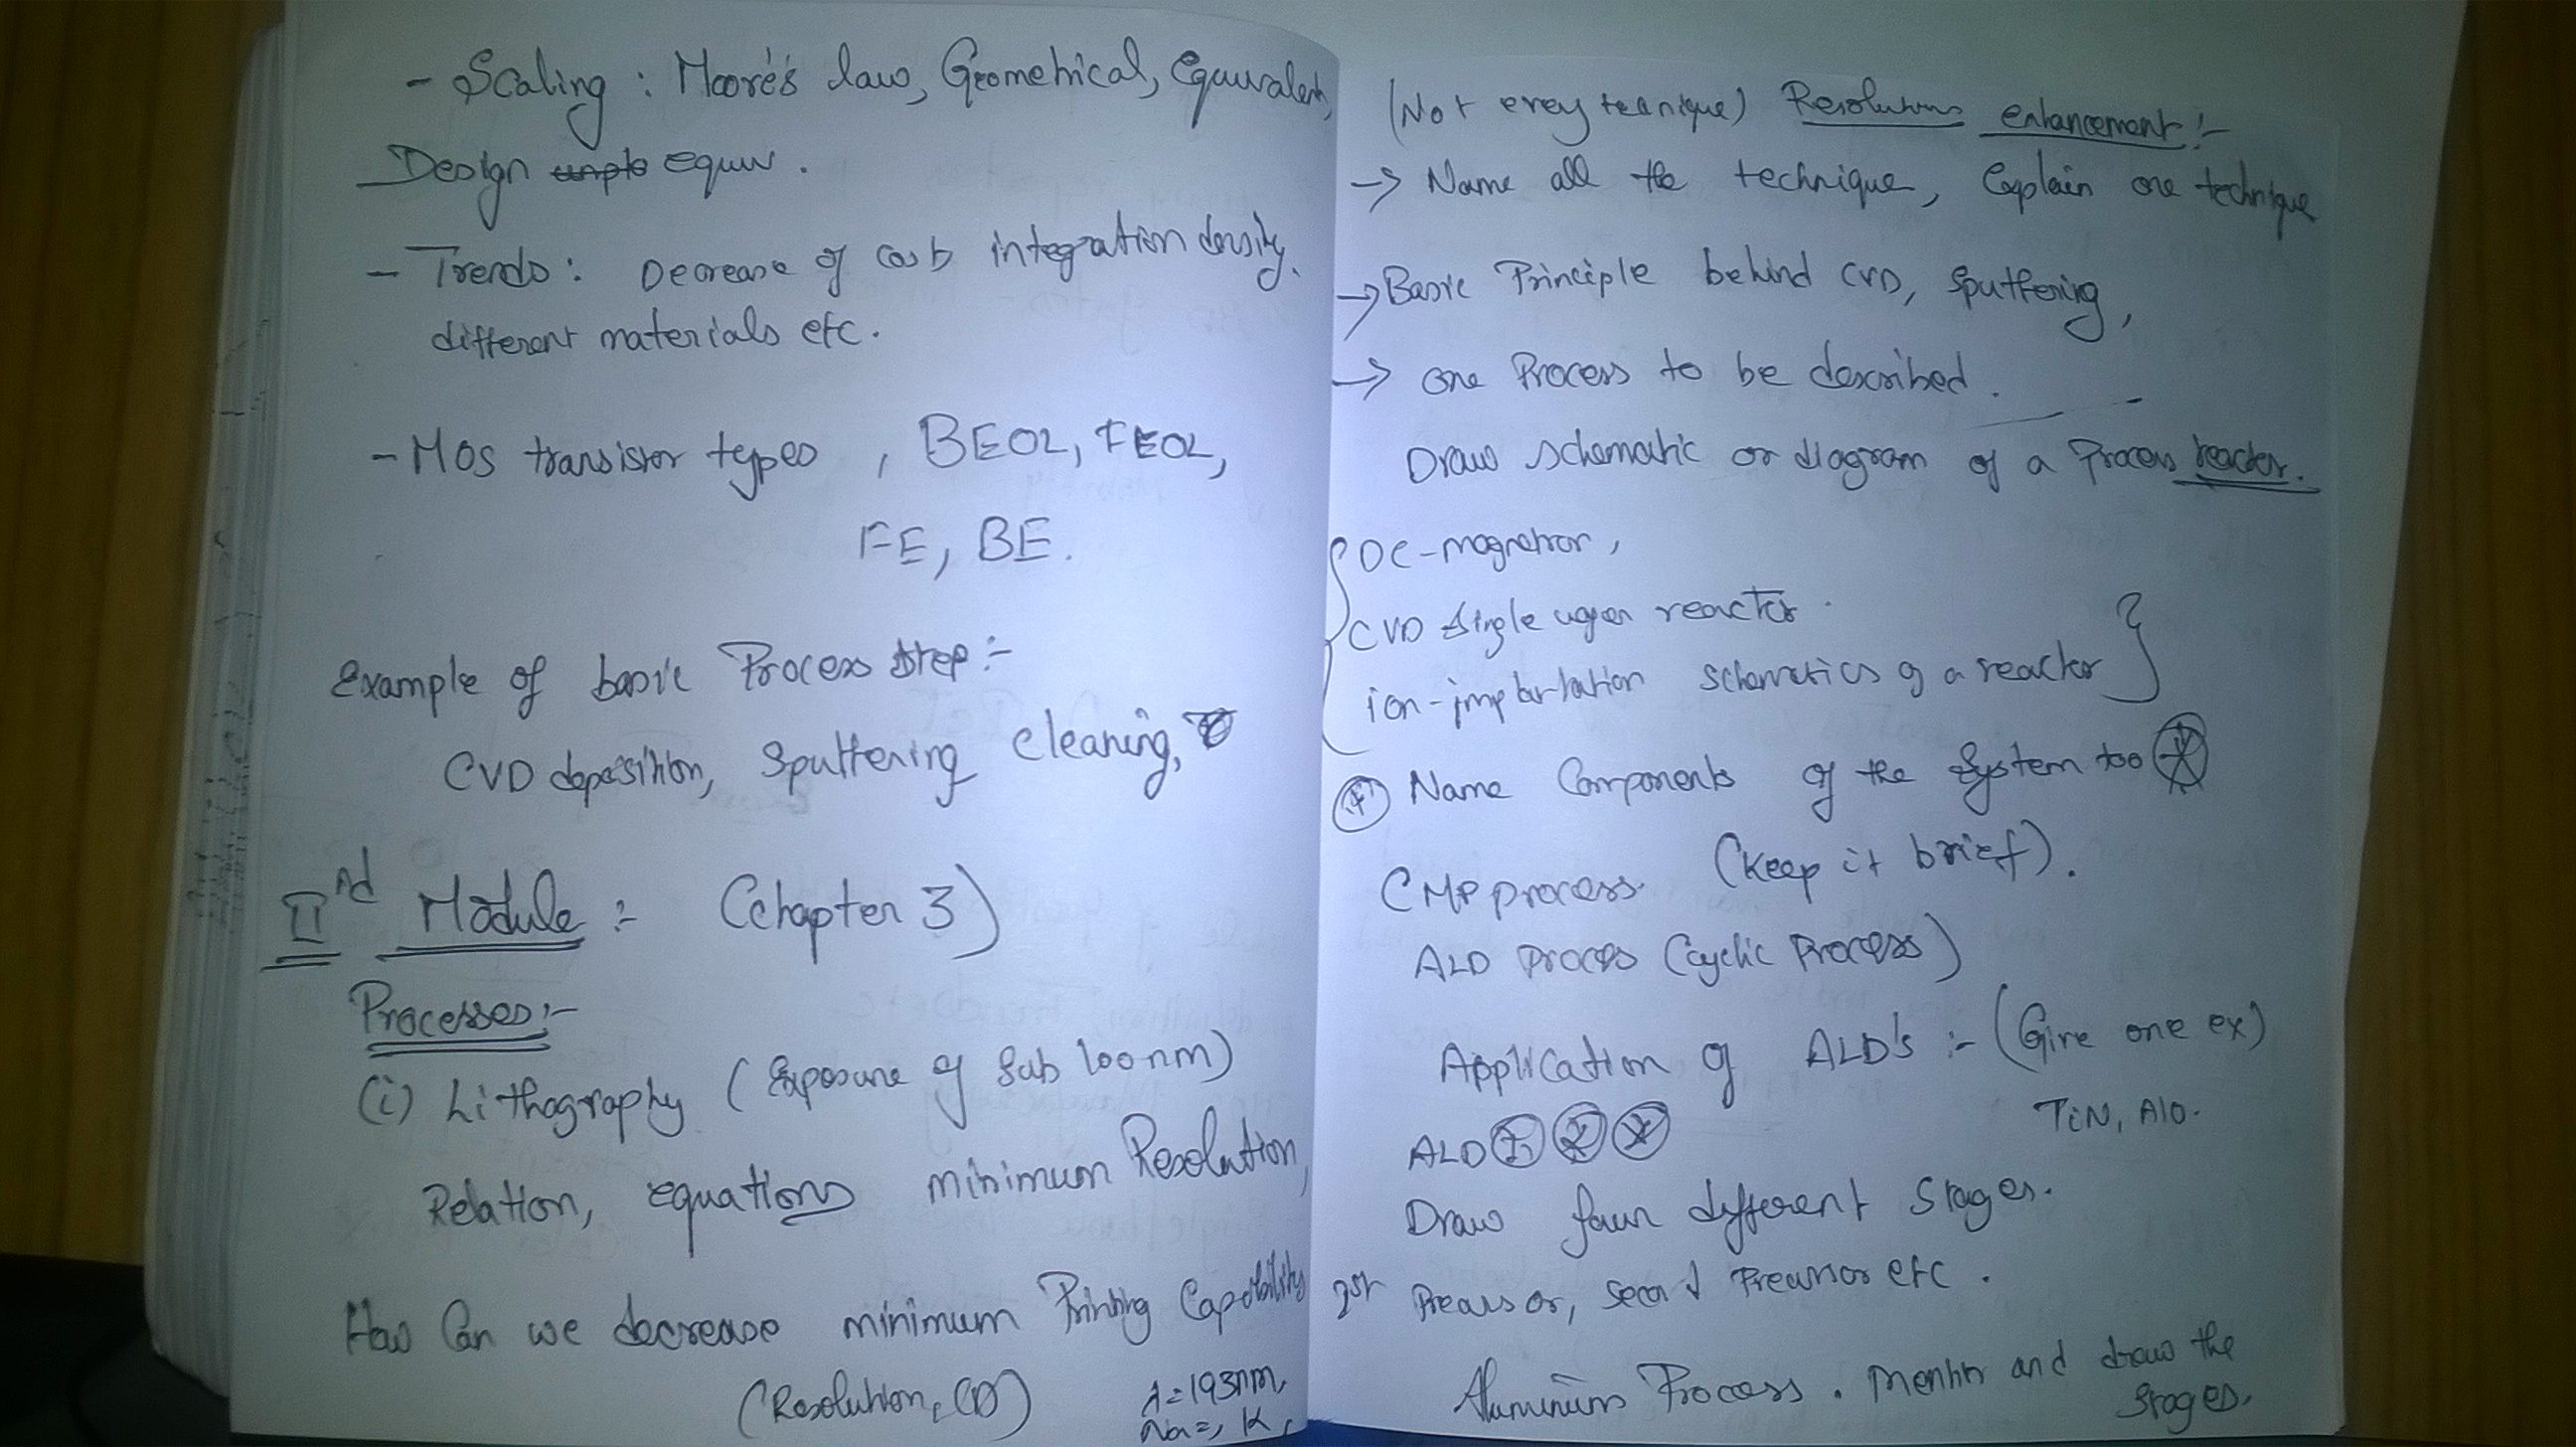 - Scaling : Moore's law, Geometrical, Equivalent,
Design equiv.
- Trends: Decrease of cost integration density,
different materials etc.
- MOS transistor types , BEOL, FEOL,
FE, BE.
Example of basic Process step:-
CVD deposition, Sputtering cleaning,
IInd Module :- (Chapter 3)
Processes:-
(i) Lithography (Exposure of Sub 100nm)
Relation, equations minimum Resolution,
How Can we decrease minimum Printing Capability
(Resolution, CD) λ=193nm,
NA=, K,
(Not every tecnique) Resolutions enhancement:-
-> Name all the technique, Explain one technique
-> Basic Principle behind CVD, Sputtering,
-> One Process to be described.
Draw schematic or diagram of a Process reactor.
DC-magnetron,
CVD single wafer reactor.
ion-implantation schematics of a reactor
Name Components of the System too
CMP process. (Keep it brief).
ALD Process (Cyclic Process)
Application of ALD's :- (Give one ex)
TiN, AlO.
ALD
Draw four different Stages.
1st Precursor, Second Precursor etc.
Aluminium Process. Mention and draw the
Stages.